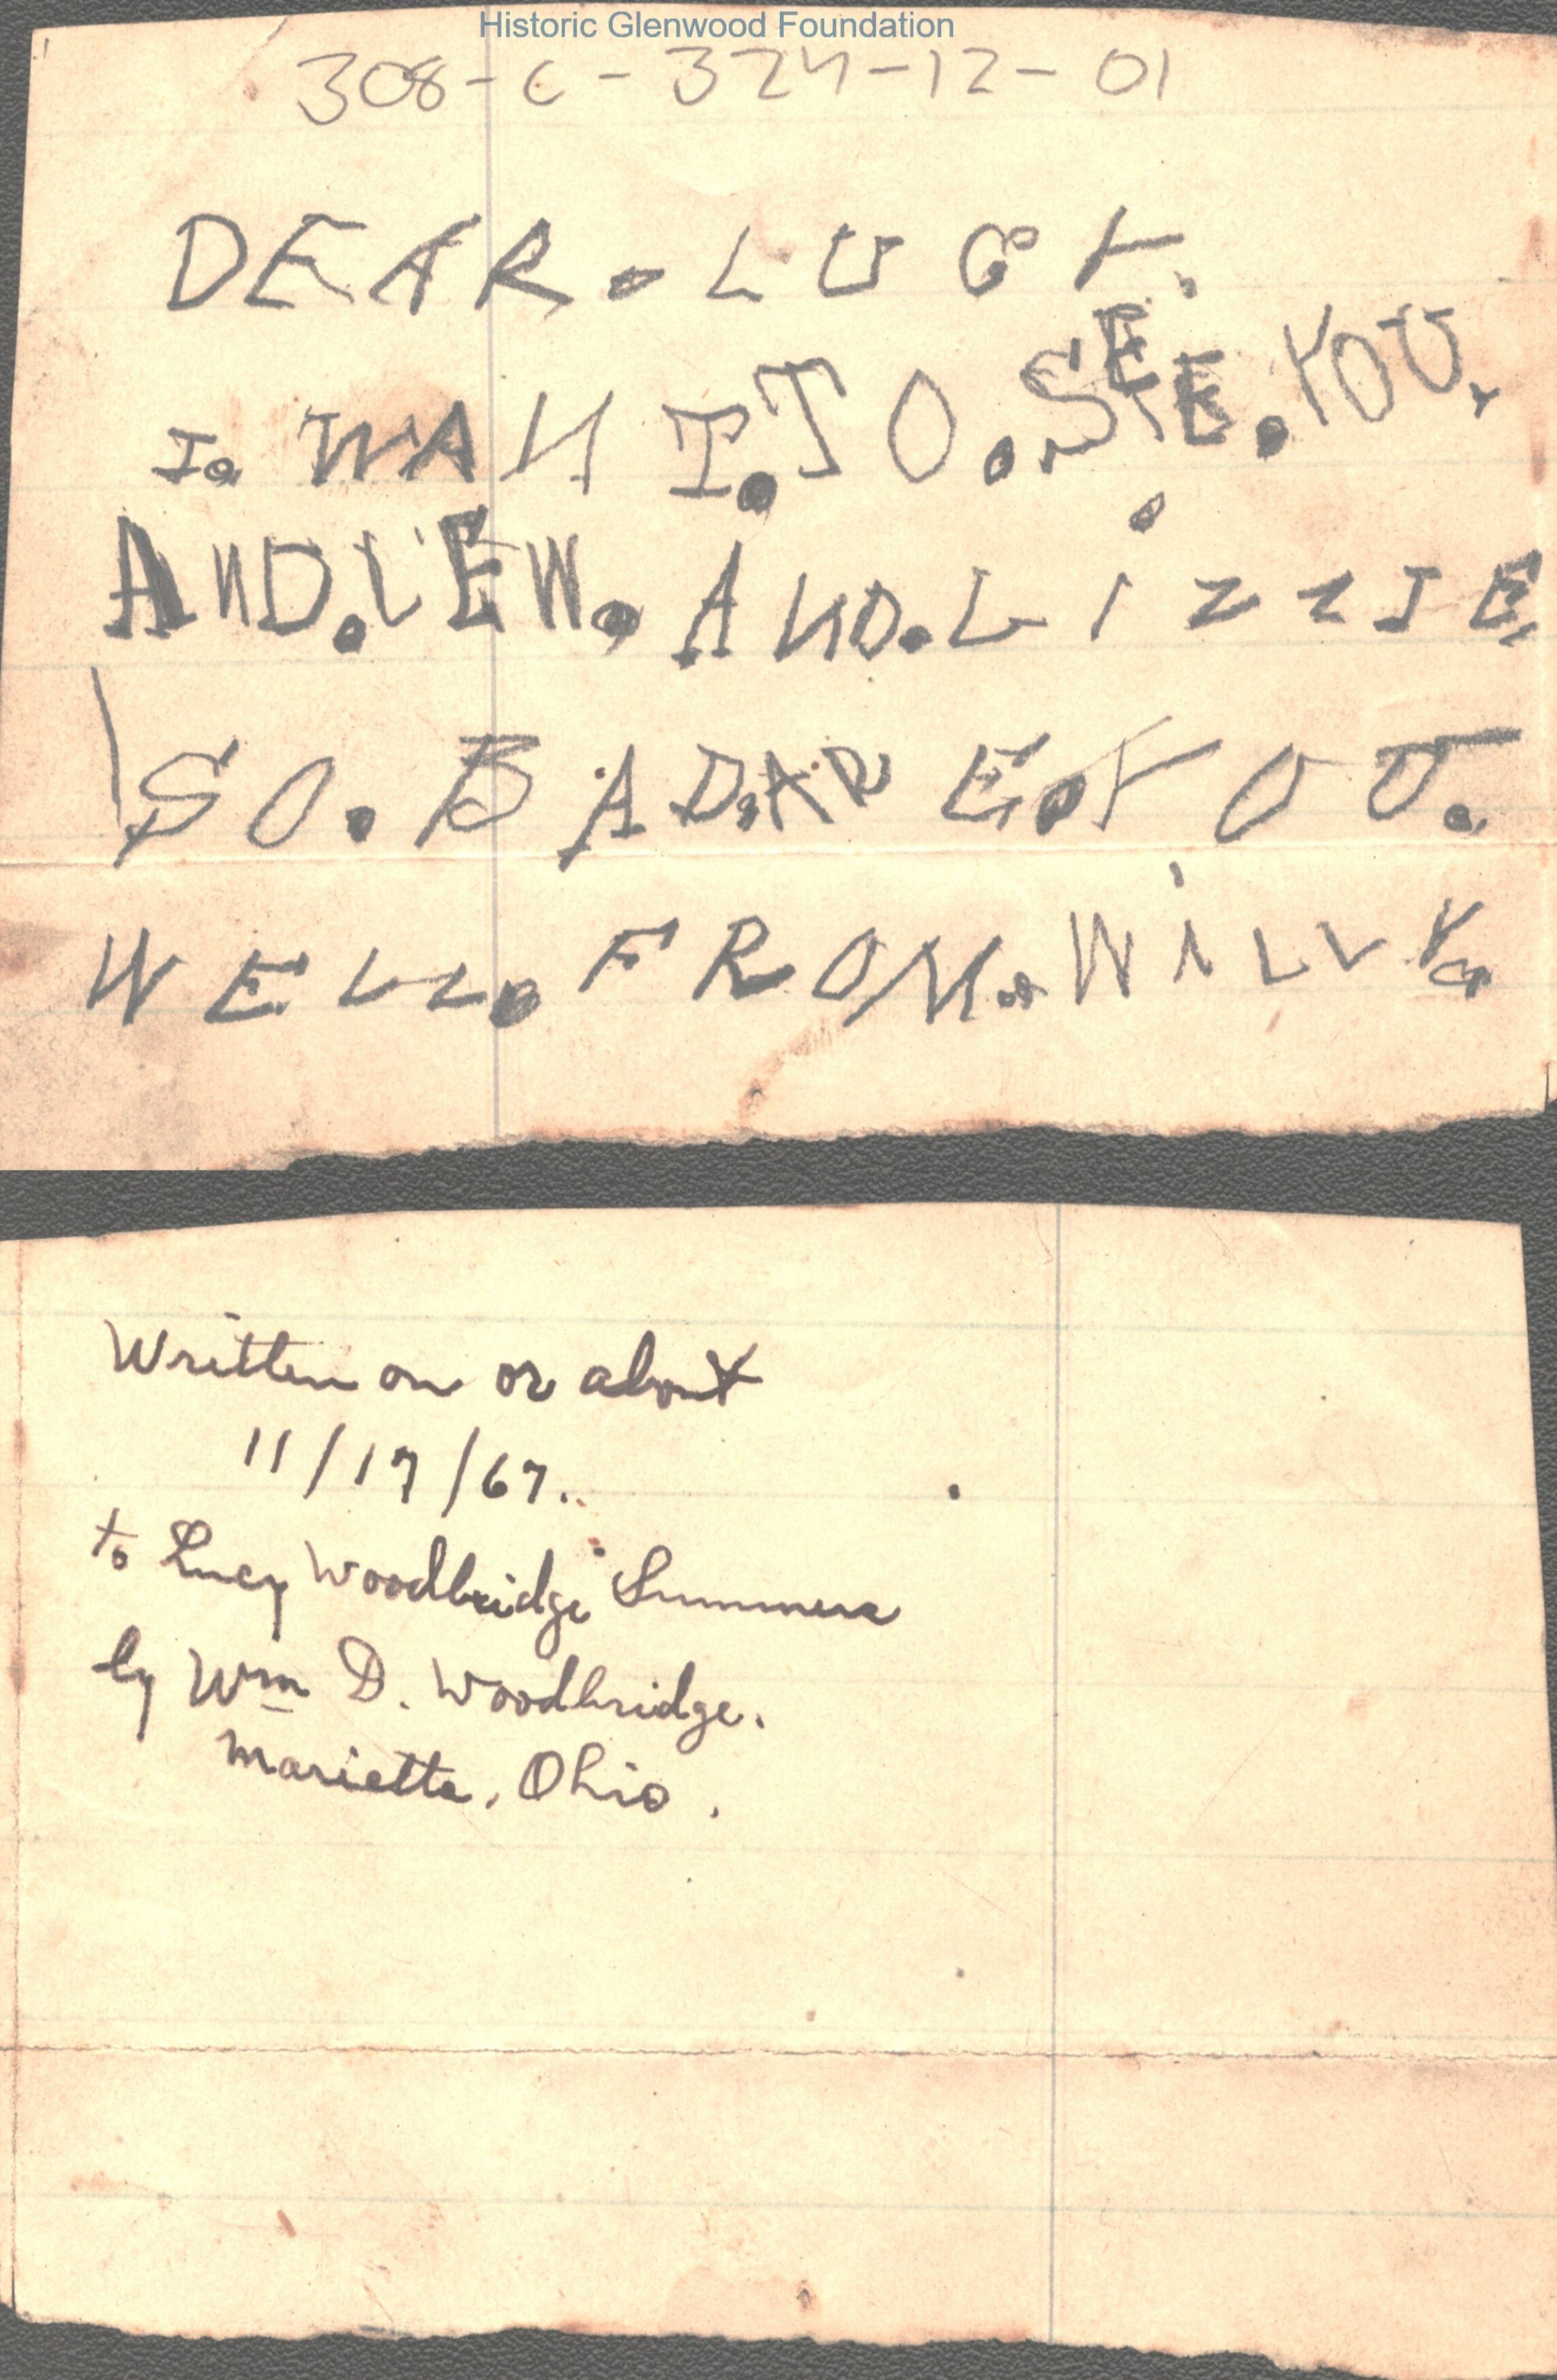 Historic Glenwood Foundation
308-C-324-12-01
DEAR. LUCY.
I. WANT. TO. SEE. YOU.
AND. LEW. AND. LIZZIE.
SO. BAD. ARE. YOU.
WELL. FROM. WILLY.
Written on or about
11/17/67.
to Lucy Woodbridge Summers
by Wm D. Woodbridge.
Marietta, Ohio.